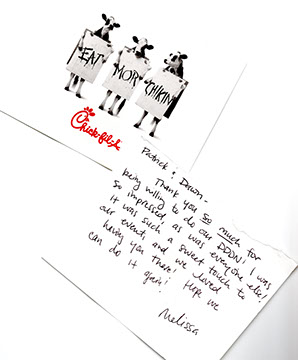 EAT
MOR
CHIKIN
Chick-fil-A
Patrick & Dawn -
Thank you so much for
being willing to do our DDDN! I was
so impressed, as was everyone else!
It was such a sweet touch to
our event, and we loved
having you there! Hope we
can do it again!
Melissa